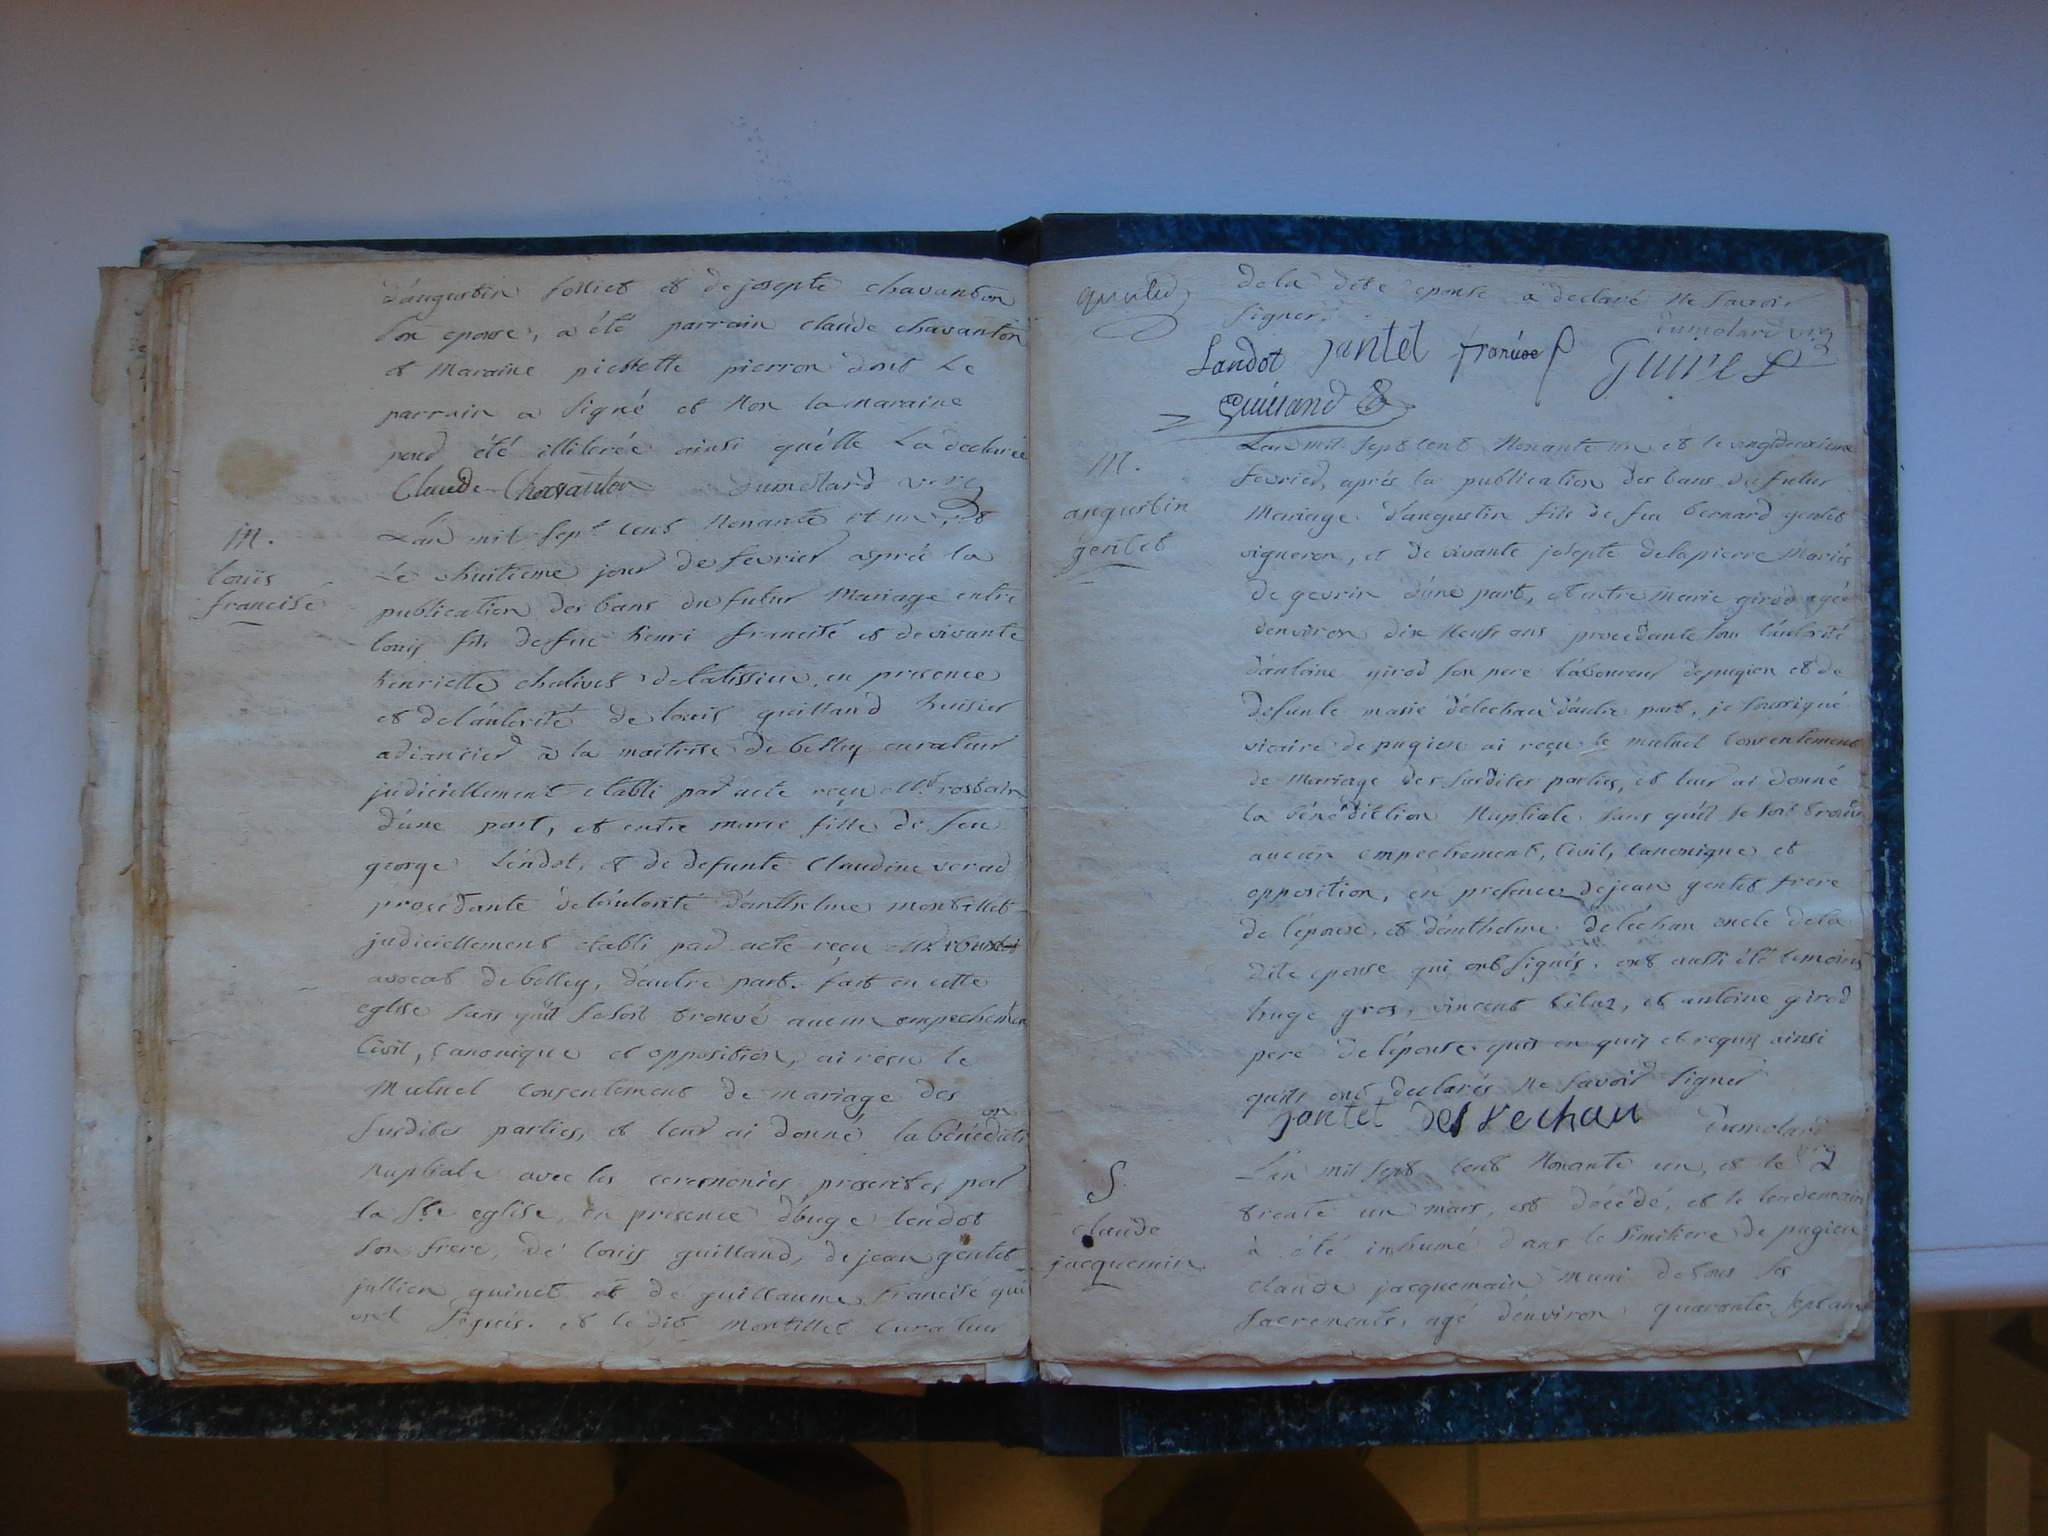 d'augustin folliet et de josepte chavanton
son epouse, a été parrain claude chavanton
et Maraine pierrette pierron dont Le
parrain a signé et Non la Maraine
pour été illiterée ainsi quélle La declarée
Claude Chavanton Dumolard vic
M.
Louis
francise
L'an mil sept cent Nonante et un, et
Le huitieme jour de fevrier aprèe la
publication des bans du futur Mariage entre
louis fils de feu henri francisé et de vivante
henriette chalivet in presence
et del'autorité de louis guilland huisier
adiancier à la maitrise de belley curateur
judiciellement etabli par acte reçu Mr. rostain
d'une part, et entre marie fille de feu
george Lendot, et de defunte Claudine
procédante del'autorité d'anthelme montillet
judiciellement etabli par acte reçu
avocat de belley, d'autre part. fait en cette
eglise sans qu'il se soit trouvé aucun empechement
Civil, Canonique et opposition, ai reçu le
Mutuel consentement de mariage des
susdites parties, et leur ai donné la bénédiction
Nuptiale avec les ceremonies prescrites par
la Ste eglise, en presence d'huge lendot
son frere, de louis guilland, de jean gentet
jullien guinet et de guillaume francisé qui
ont signés. et le dit montillet Curateur
de la dite epouse a declaré Ne savoir
signer.
Dumolard vic
Landot jantet francise
guilland
M.
augustin
gentet
L'an mil sept cent Nonante un et le vingtdeuxieme
fevrier, aprés la publication des bans du futur
Mariage d'augustin fils de feu bernard gentet
vigneron, et de vivante josepte delapierre Mariés
de gevrin d'une part, et entre Marie girod agée
denviron dix Neuf ans procedante sous l'autorité
d'antoine girod son pere laboureur depugieu et de
defunte marie délechau d'autre part, je soussigné
vicaire de pugieu ai reçu le mutuel Consentement
de Mariage des susdites parties, et leur ai donné
la bénédiction Nuptiale sans qu'il se soit trouvé
aucun empechement, Civil, Canonique et
opposition, en presence dejean gentet frere
de l'epouse, et d'anthelme deléchau oncle de la
dite epouse qui ont signés. ont aussi été temoins
huge gros, vincent et antoine girod
pere de l'épouse. enquis et requis ainsi
qu'ils ont declarés Ne Savoir Signer
jantet delechau Dumolard
vic
S.
claude
jacquemin
L'an mil sept cent Nonante un, et le
trente un mars, est décédé, et le lendemain
à été inhumé dans le simitiere de pugieu
claude jacquemain muni detous ses
sacrements, agé d'environ quarante sept ans